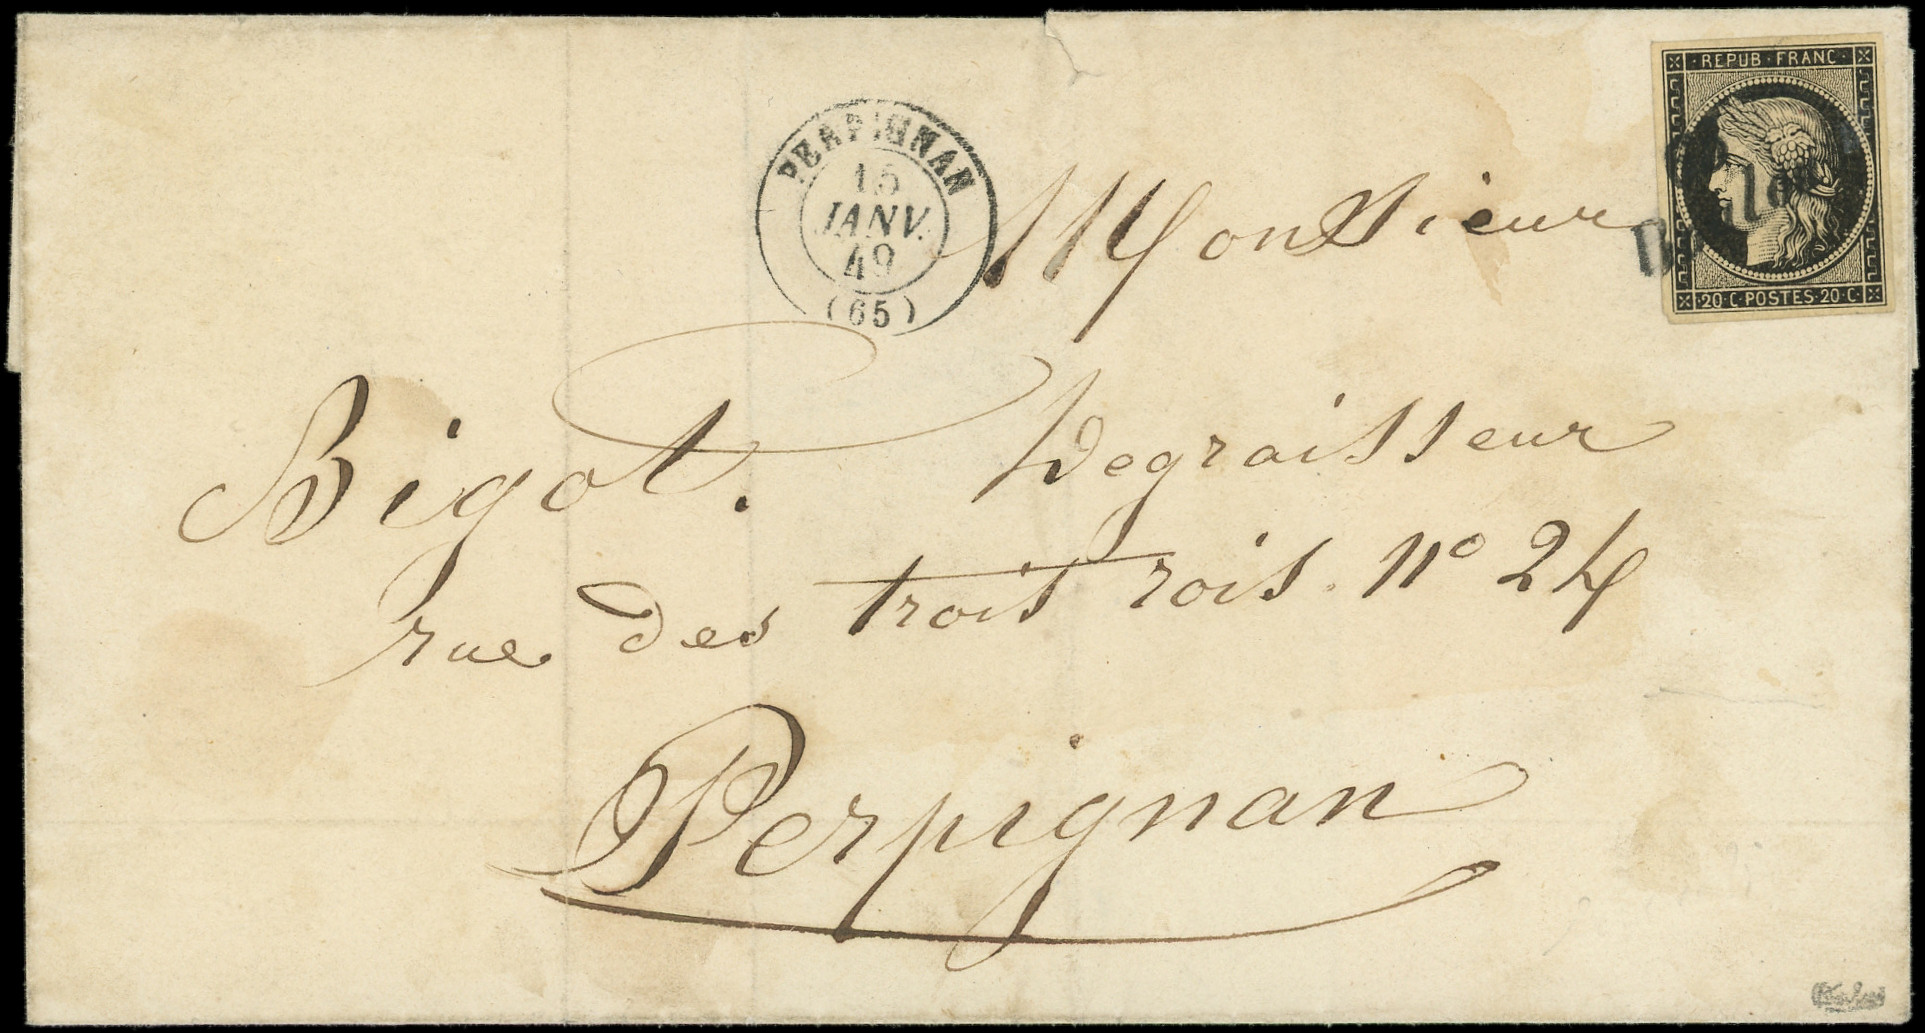 REPUB·FRANC·
20·C·POSTES·20·C
PERPIGNAN
15
JANV.
49
(65)
Monsieur
Bigot. Degraisseur
rue des trois rois. no 24
Perpignan